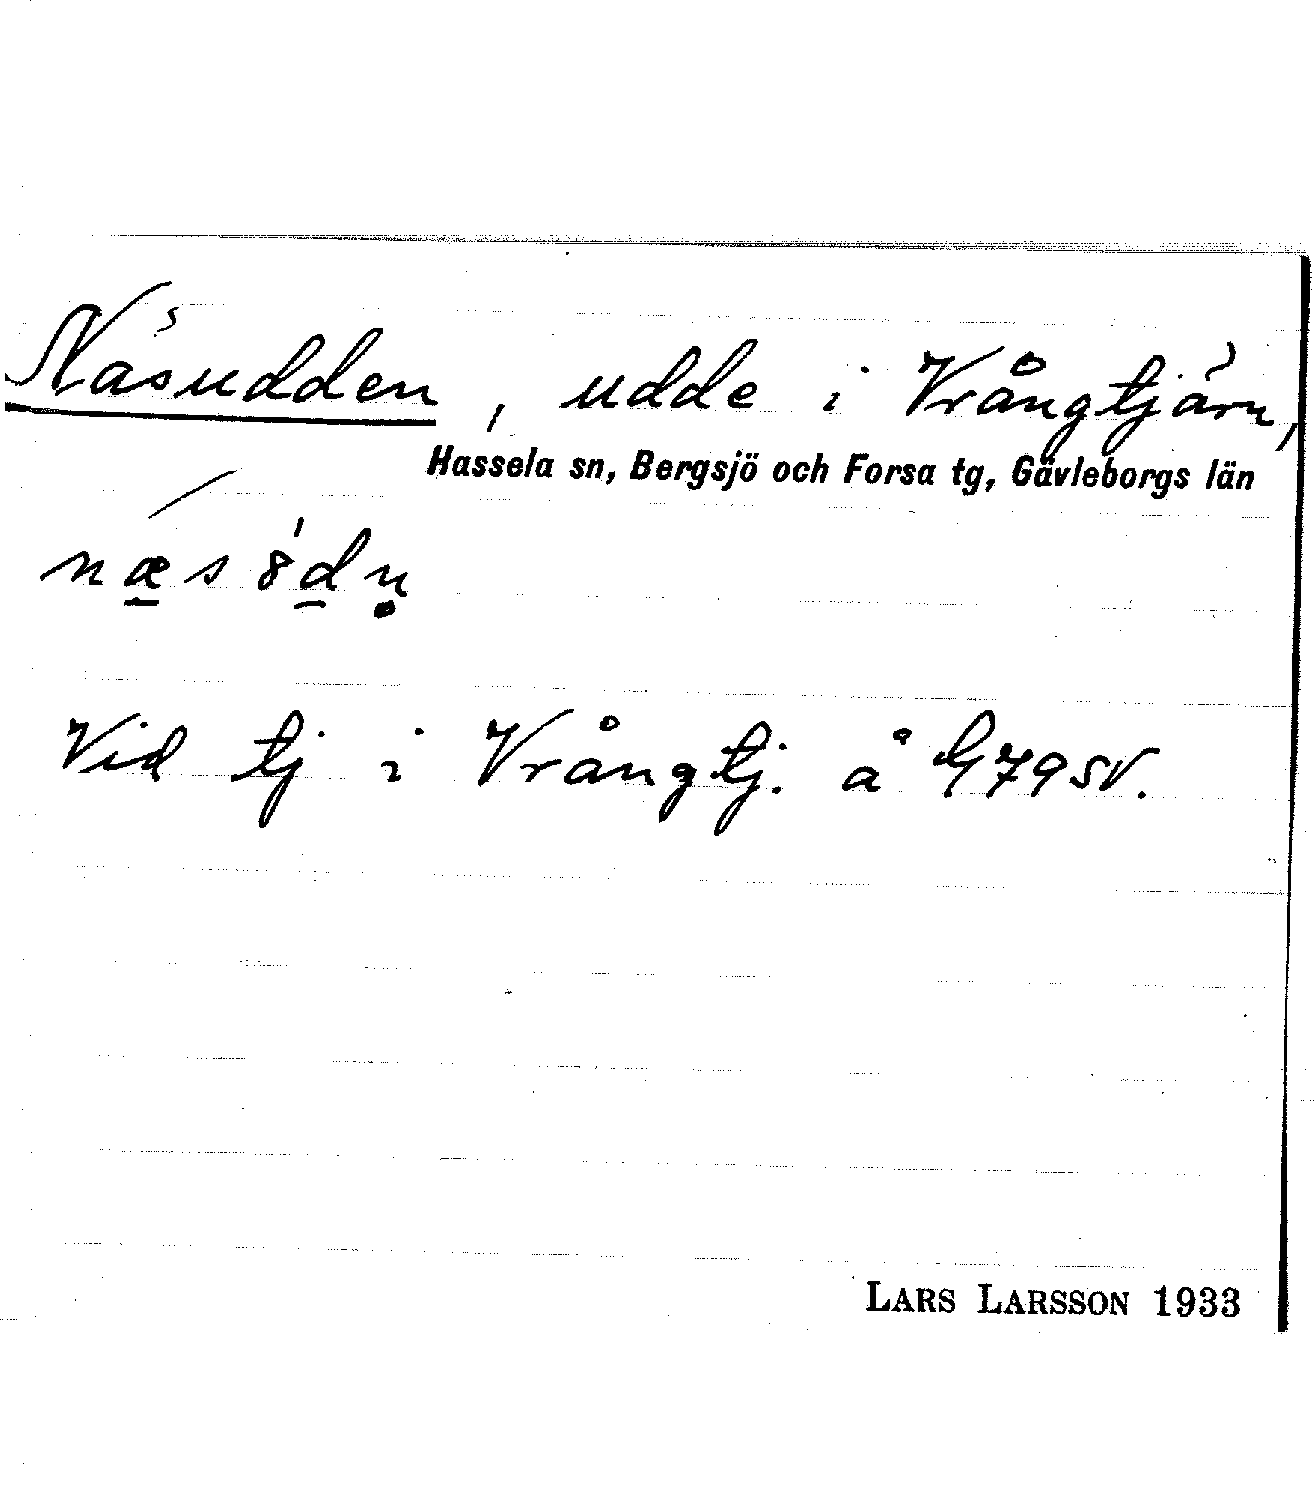 Näsudden, udde i Vrångtjärn,
Hassela sn, Bergsjö och Forsa tg, Gävleborgs län
næ̲s 8̍d̲ṇ
Vid tj i Vrångtj. å G79SV.
LARS LARSSON 1933